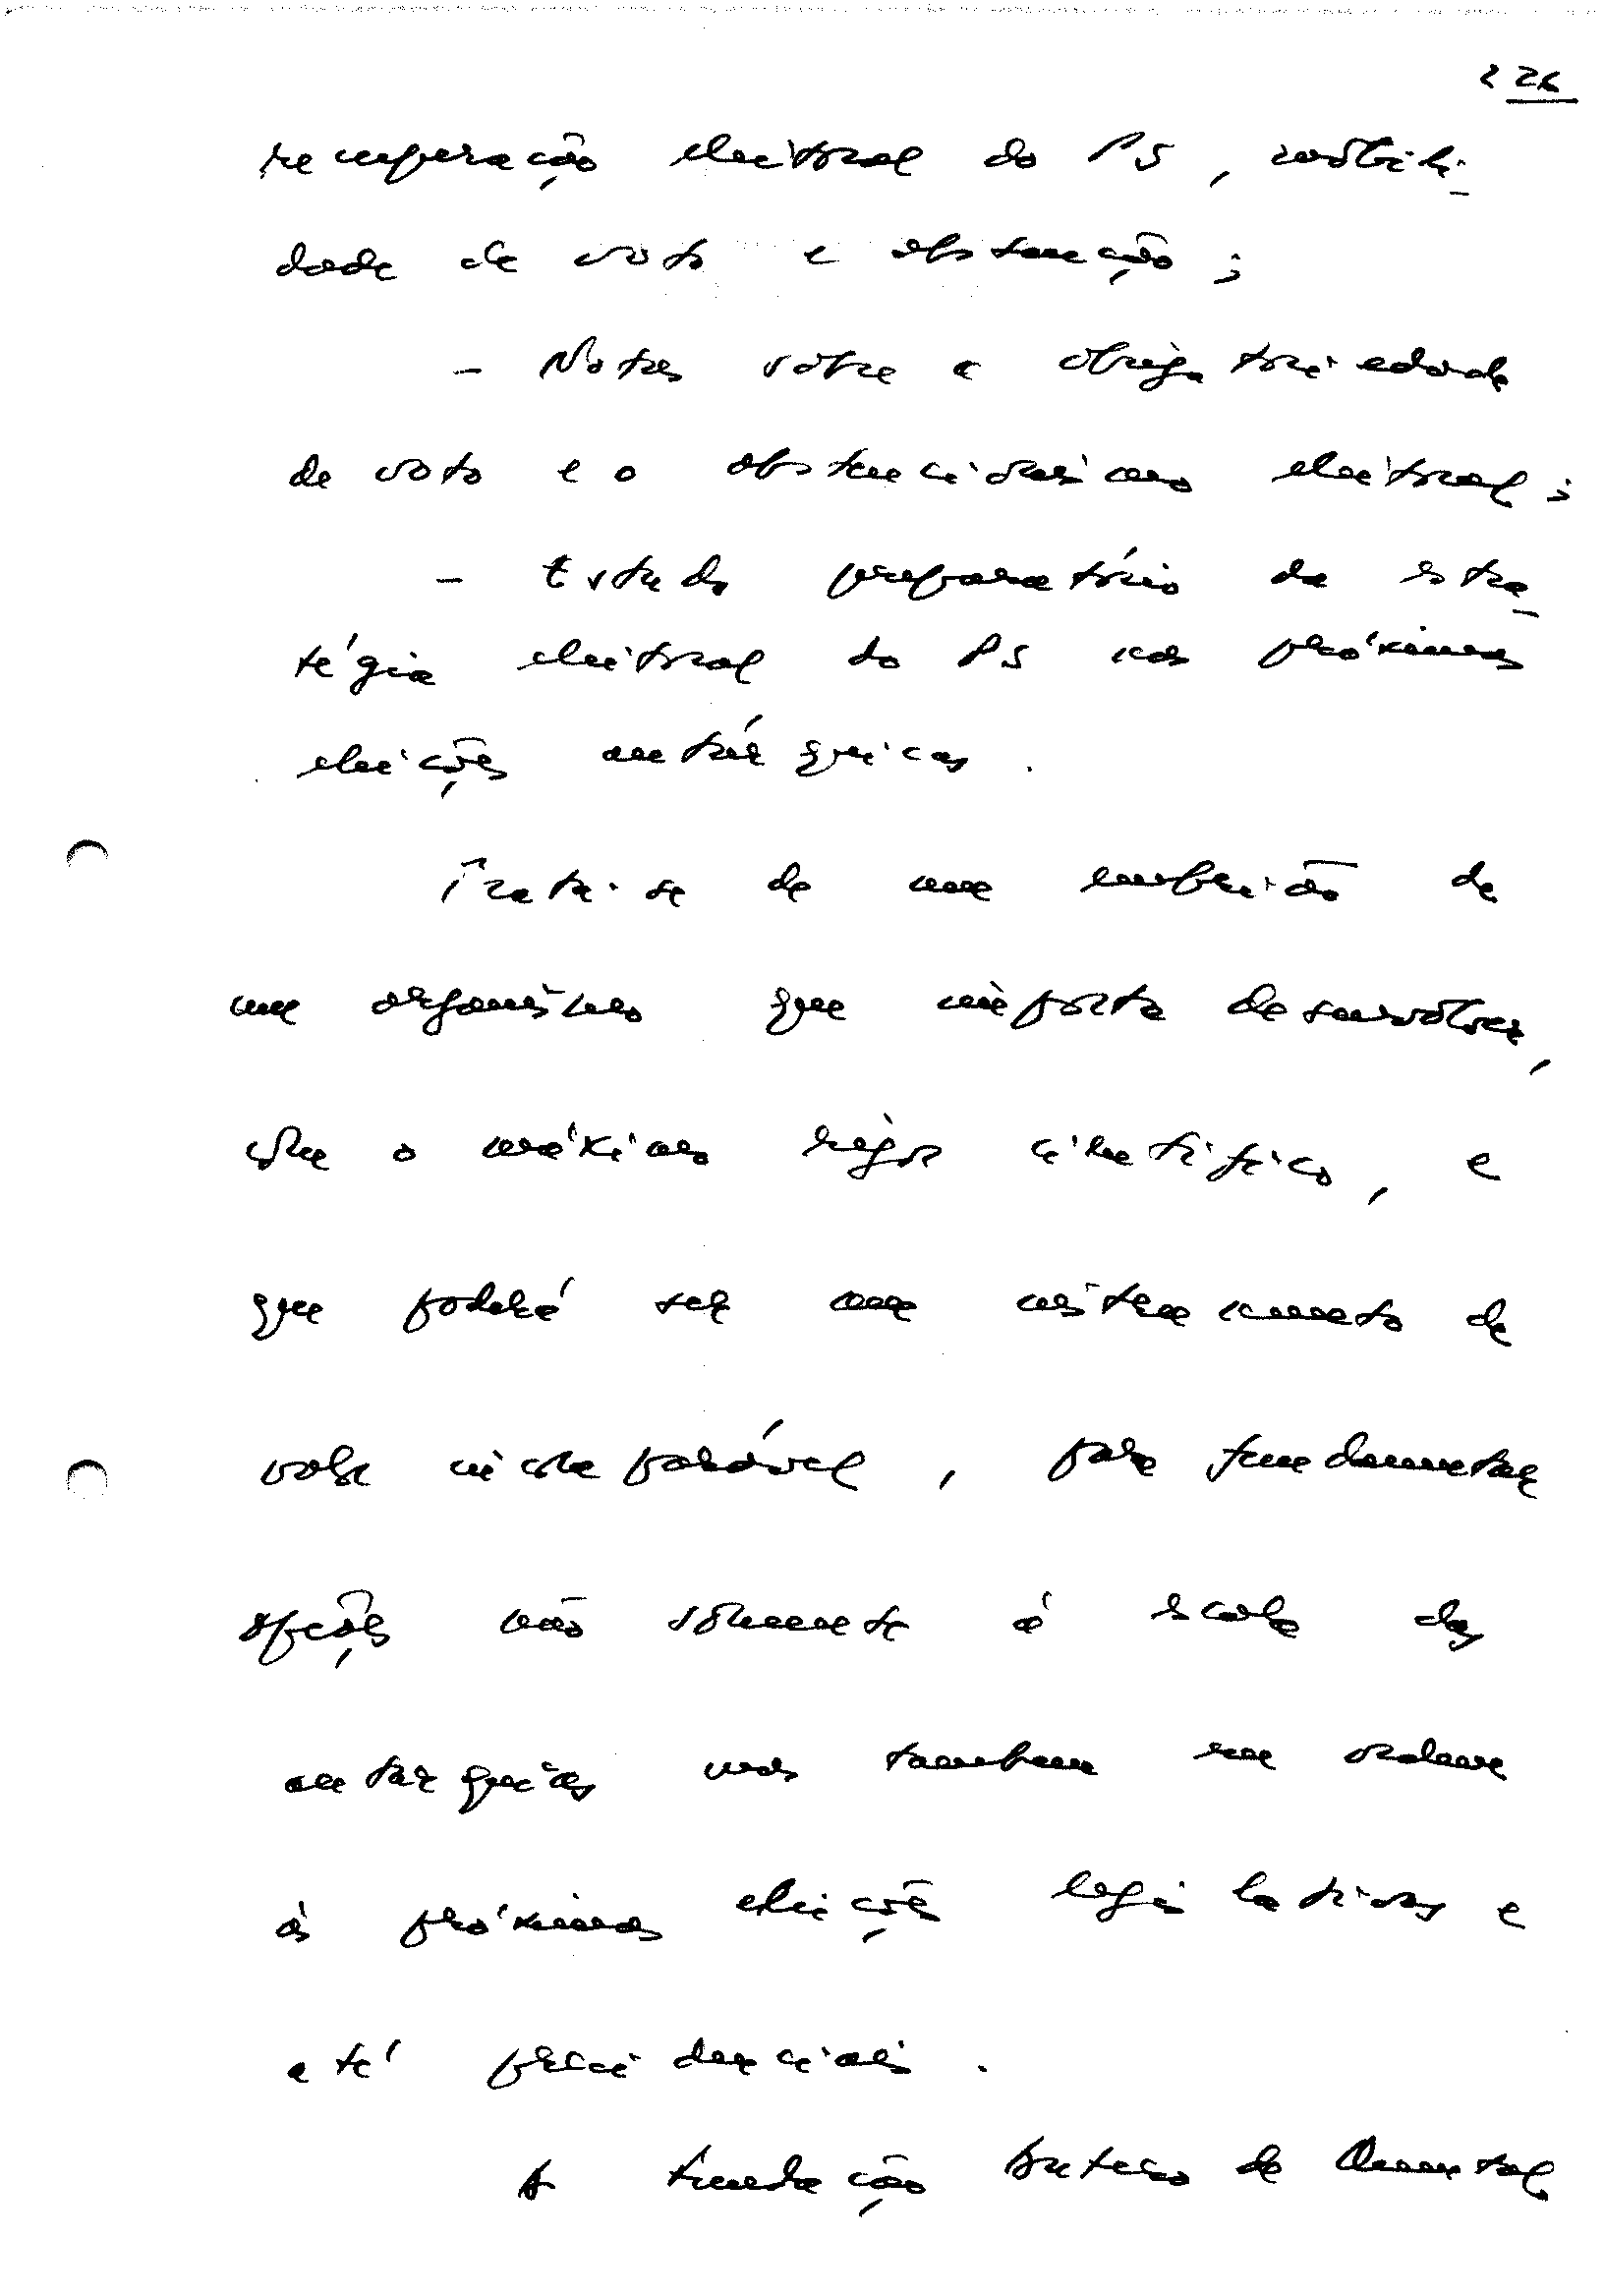 226
recuperação eleitoral do PS, volatili-
dade de voto e abstenção;
- Notas sobre a obrigatoriedade
de voto e o abstencionismo eleitoral;
- Estudo preparatório da estra-
tégia eleitoral do PS nas próximas
eleições autárquicas.
Trata-se de uma de
um organismo que importa desenvolver,
com o máximo rigor científico, e
que poderá ser um instrumento de
valor incomparável, para fundamentar
opções não somente à escala das
autarquias mas tambem em ordem
às próximas eleições legislativas e
até presidenciais.
A Fundação Antero de Quental